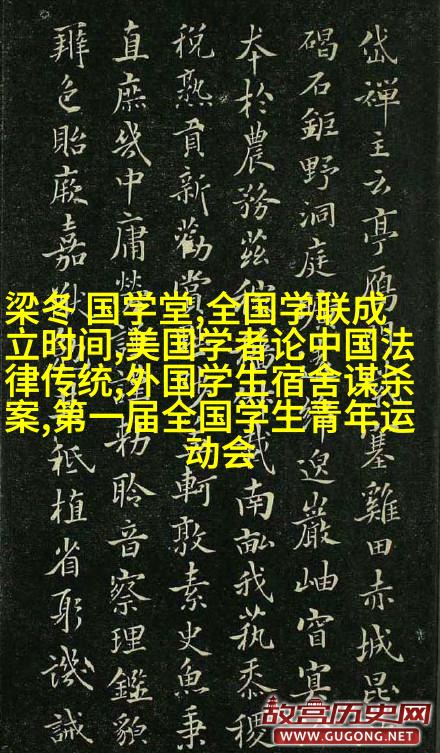 岱禪主云亭鴈塞雞田赤城昆
碣石鉅野洞庭邈巖岫窅冥
本於農務茲載南畝我蓺黍稷
稅熟貢新勸賞軻敦素史魚秉
直庶幾中庸勞謹勅聆音察理鑑貌
辯色貽厥嘉猷祗植省躬譏誡
梁冬 国学堂,全国学联成
立时间,美国学者论中国法
律传统,外国学生宿舍谋杀
案,第一届全国学生青年运
动会
故宫历史网
WWW.GUGONG.NET